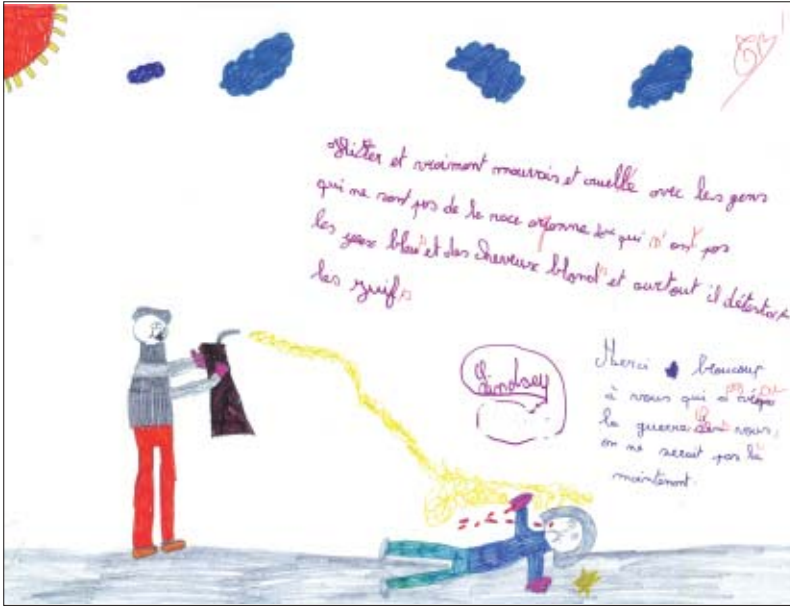 Hitler et vraiment mauvais et cruelle avec les gens
qui ne sont pas de la race aryenne qui n'ont pas
les yeux bleus et des cheveux blonds et surtout il détestait
les juifs
Lindsey
Merci beaucoup
à vous qui a
la guerre vous,
on ne serait pas là
maintenant.